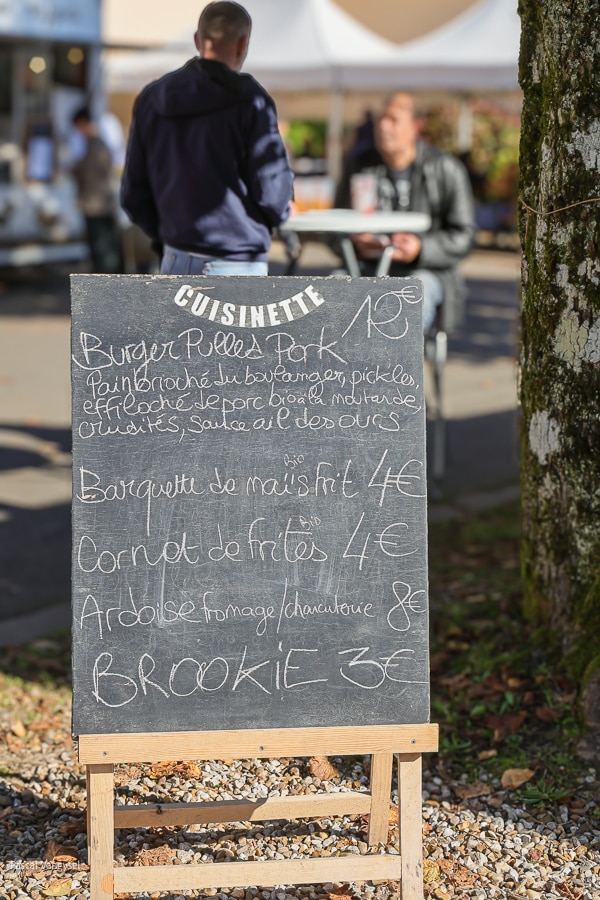 CUISINETTE
12€
Burger Pulled Pork
Pain brioché du boulanger, pickles,
effiloché de porc bio à la moutarde,
crudités, sauce ail des ours
Bio
Barquette de maïs frit 4€
Bio
Cornet de frites 4€
Ardoise fromage/charcuterie 8€
BROOKIE 3€